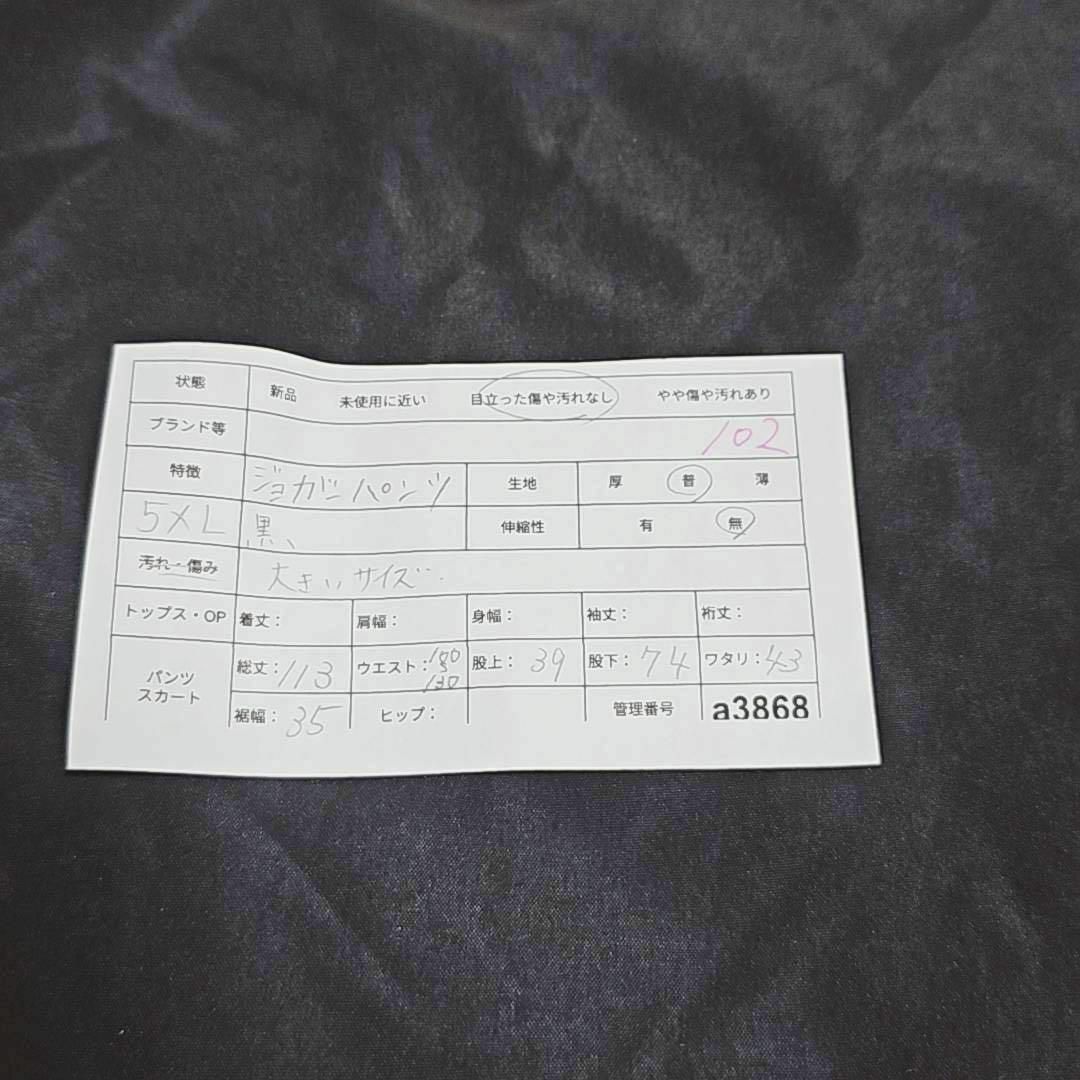 状態 新品 未使用に近い 目立った傷や汚れなし やや傷や汚れあり
ブランド等 102
特徴 ジョガーパンツ 生地 厚 普 薄
5XL 黒、 伸縮性 有 無
汚れ・傷み 大きいサイズ.
トップス・OP 着丈: 肩幅: 身幅: 袖丈: 裄丈:
パンツ スカート 総丈:113 ウエスト:100 〜 130 股上:39 股下:74 ワタリ:43
裾幅:35 ヒップ: 管理番号 a3868